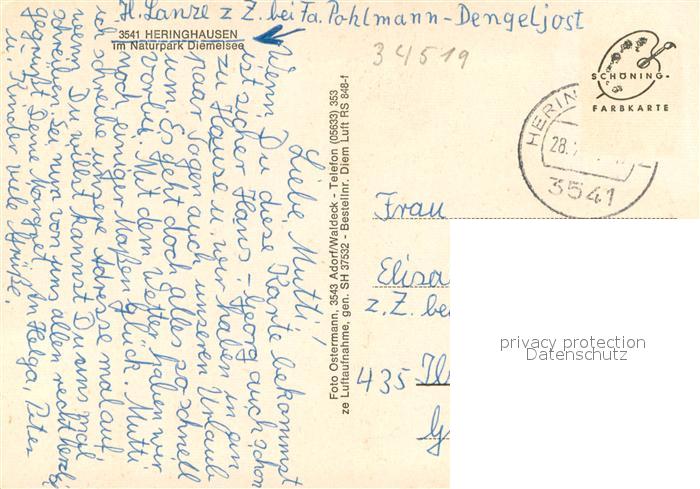 H. Lanze z Z. bei Fa. Pohlmann-Dengeljost
3541 HERINGHAUSEN
im Naturpark Diemelsee
Liebe Mutti!
Wenn Du diese Karte bekommst
ist sicher Hans-Georg auch schon
zu Hause u. wir haben in ein
paar Tagen auch unseren Urlaub
um. Es geht doch alles so schnell
vorbei. Mit dem Wetter haben wir
noch einiger Maßen glück. Mutti
ich schreibe unsere Adresse mal auf
wenn Du willst kannst Du uns mal
schreiben. Sei nun von uns allen recht herzl.
gegrüßt Deine Margret
An Helga, Peter
u. Kinder viele Grüße.
Foto Ostermann, 3543 Adorf/Waldeck - Telefon (05633) 353
ze Luftaufnahme, gen. SH 37532 - Bestellnr. Diem Luft RS 848-f
34519
SCHÖNING-
FARBKARTE
HERIN
28.
3541
Frau
Elisa
z. Z. bei
435
privacy protection
Datenschutz